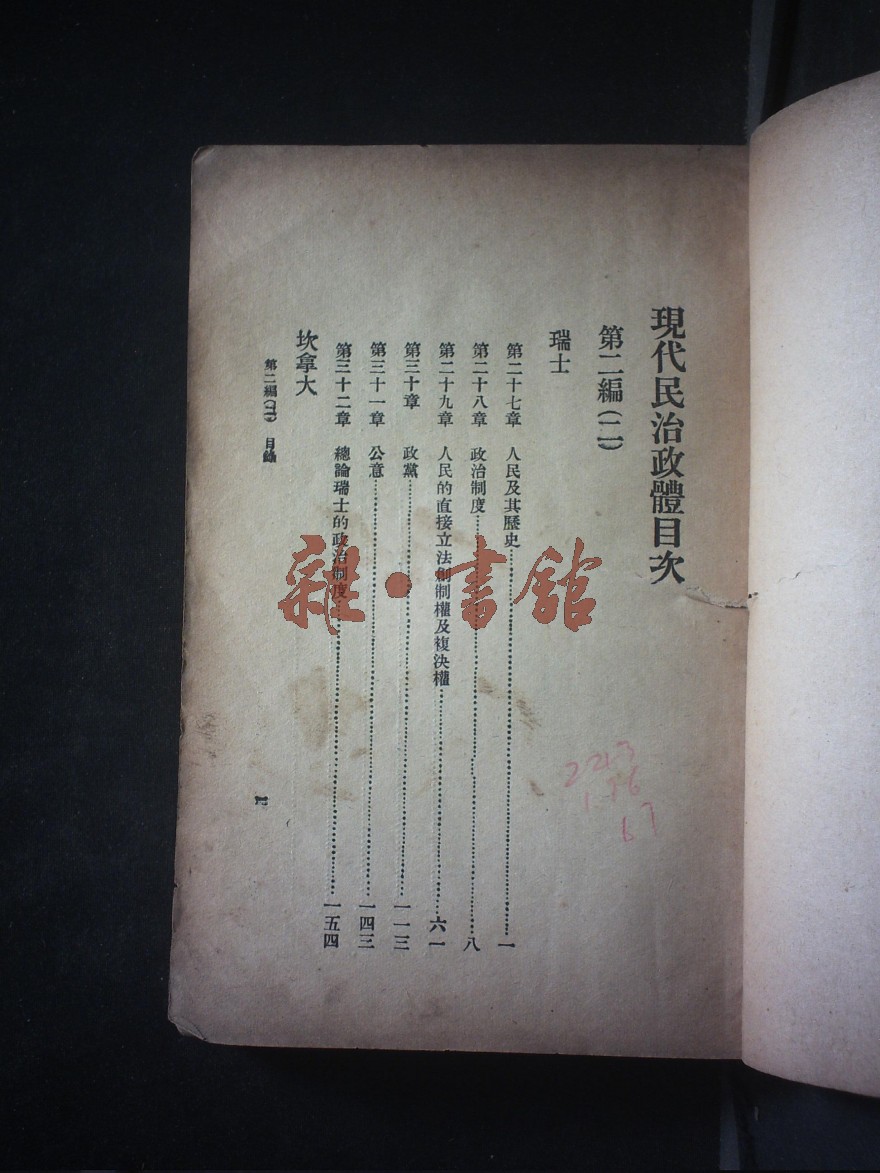 現代民治政體目次
第二編(二)
瑞士
第二十七章 人民及其歷史 一
第二十八章 政治制度 八
第二十九章 人民的直接立法創制權及複決權 六一
第三十章 政黨 一一三
第三十一章 公意 一四三
第三十二章 總論瑞士的政治制度 一五四
坎拿大
第二編(二) 目錄
雜·書館